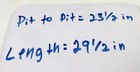 Pit to Pit = 23 1/2 in
Length = 29 1/2 in